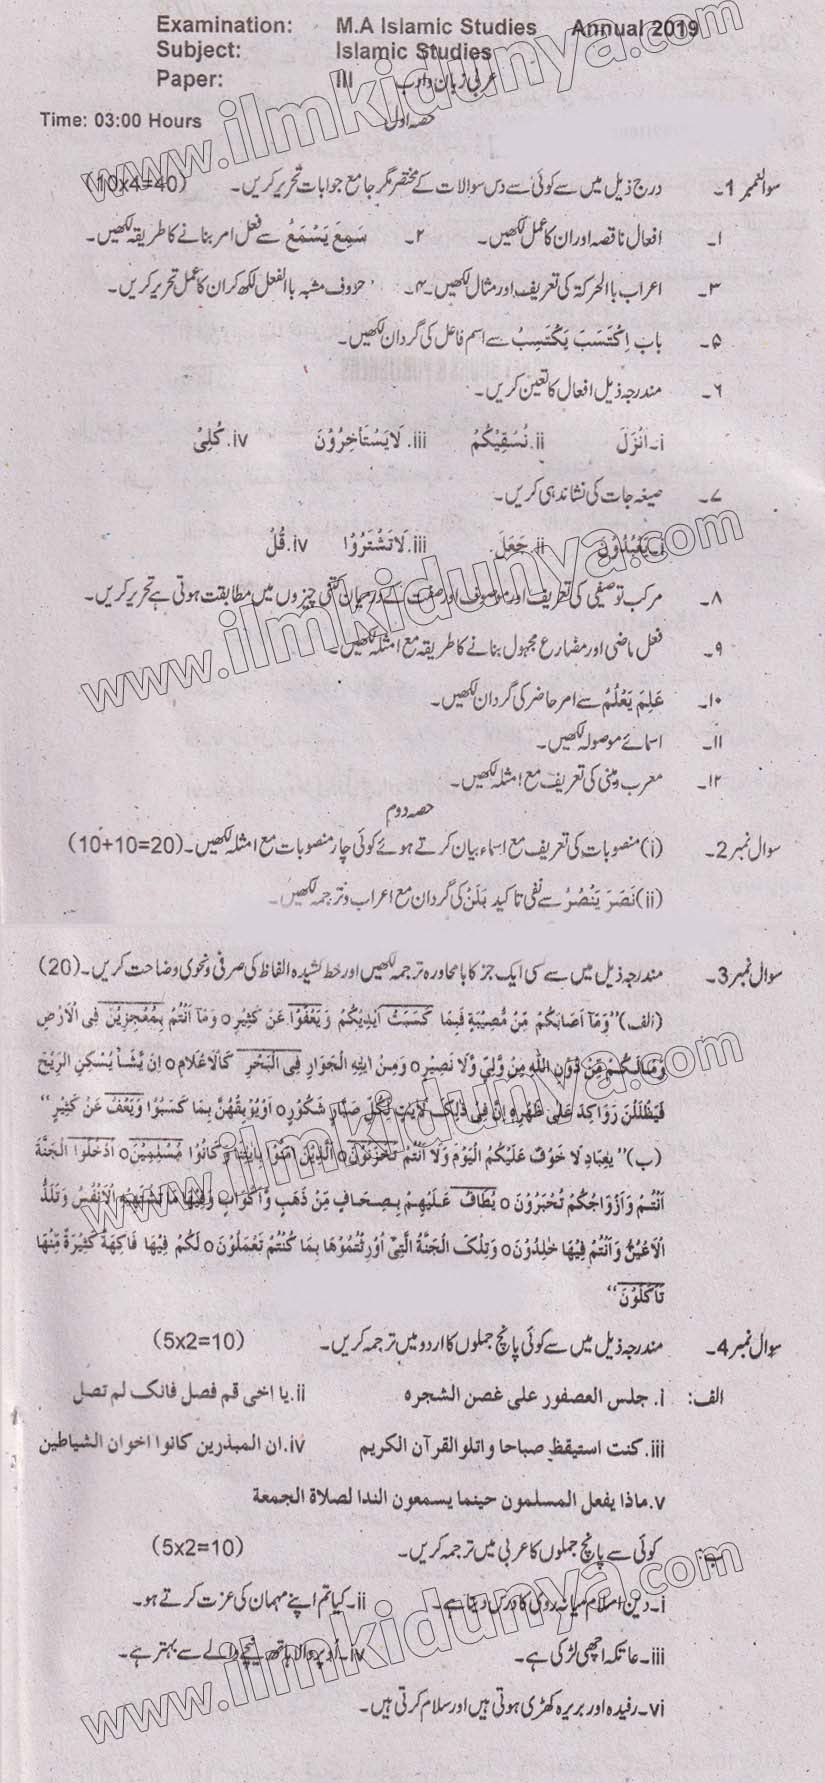 Examination: M.A Islamic Studies Annual 2019
Subject: Islamic Studies
Paper: III عربی زبان و ادب
Time: 03:00 Hours حصہ اول
سوال نمبر 1۔ درج ذیل میں سے کوئی سے دس سوالات کے مختصر مگر جامع جوابات تحریر کریں۔ (10x4=40)
۱۔ افعال ناقصہ اور ان کا عمل لکھیں۔ ۲۔ سَمِعَ یَسْمَعُ سے فعل امر بنانے کا طریقہ لکھیں۔
۳۔ اعراب باالحرکۃ کی تعریف اور مثال لکھیں۔ ۴۔ حروف مشبہ باالفعل لکھ کر ان کا عمل تحریر کریں۔
۵۔ باب اِکْتَسَبَ یَکْتَسِبُ سے اسم فاعل کی گردان لکھیں۔
۶۔ مندرجہ ذیل افعال کا تعین کریں۔
i۔ اَنْزَلَ ii. نُسْقِیْکُمْ iii. لَایَسْتَأْخِرُوْنَ iv. کُلِیْ
۷۔ صیغہ جات کی نشاندہی کریں۔
i۔ یَعْبُدُوْنَ ii. جَعَلَ iii. لَاتَشْتَرُوْا iv. قُلْ
۸۔ مرکب توصیفی کی تعریف اور موصوف اور صفت کے درمیان کتنی چیزوں میں مطابقت ہوتی ہے تحریر کریں۔
۹۔ فعل ماضی اور مضارع مجہول بنانے کا طریقہ مع امثلہ لکھیں۔
۱۰۔ عَلِمَ یَعْلَمُ سے امر حاضر کی گردان لکھیں۔
۱۱۔ اسمائے موصولہ لکھیں۔
۱۲۔ معرب و مبنی کی تعریف مع امثلہ لکھیں۔
حصہ دوم
سوال نمبر 2۔ (i) منصوبات کی تعریف مع اسماء بیان کرتے ہوئے کوئی چار منصوبات مع امثلہ لکھیں۔ (10+10=20)
(ii) نَصَرَ یَنْصُرُ سے نفی تاکید بَلَنْ کی گردان مع اعراب و ترجمہ لکھیں۔
سوال نمبر 3۔ مندرجہ ذیل میں سے کسی ایک جز کا بامحاورہ ترجمہ لکھیں اور خط کشیدہ الفاظ کی صرفی و نحوی وضاحت کریں۔ (20)
(الف) "وَمَآ اَصَابَکُمْ مِّنْ مُّصِیْبَةٍ فَبِمَا کَسَبَتْ اَیْدِیْکُمْ وَ یَعْفُوْا عَنْ کَثِیْرٍ o وَمَآ اَنْتُمْ بِمُعْجِزِیْنَ فِی الْاَرْضِ
وَمَالَکُمْ مِّنْ دُوْنِ اللّٰهِ مِنْ وَّلِیٍّ وَّلَا نَصِیْرٍ o وَمِنْ اٰیٰتِهِ الْجَوَارِ فِی الْبَحْرِ کَالْاَعْلَامِ o اِنْ یَّشَأْ یُسْکِنِ الرِّیْحَ
فَیَظْلَلْنَ رَوَاکِدَ عَلٰی ظَهْرِهٖ اِنَّ فِیْ ذٰلِکَ لَاٰیٰتٍ لِّکُلِّ صَبَّارٍ شَکُوْرٍ o اَوْیُوْبِقْهُنَّ بِمَا کَسَبُوْا وَیَعْفُ عَنْ کَثِیْرٍ"
(ب) "یٰعِبَادِ لَا خَوْفٌ عَلَیْکُمُ الْیَوْمَ وَلَآ اَنْتُمْ تَحْزَنُوْنَ o اَلَّذِیْنَ اٰمَنُوْا بِاٰیٰتِنَا وَکَانُوْا مُسْلِمِیْنَ o اُدْخُلُوا الْجَنَّةَ
اَنْتُمْ وَاَزْوَاجُکُمْ تُحْبَرُوْنَ o یُطَافُ عَلَیْهِمْ بِصِحَافٍ مِّنْ ذَهَبٍ وَّاَکْوَابٍ وَفِیْهَا مَا تَشْتَهِیْهِ الْاَنْفُسُ وَتَلَذُّ
الْاَعْیُنُ وَاَنْتُمْ فِیْهَا خٰلِدُوْنَ o وَتِلْکَ الْجَنَّةُ الَّتِیْٓ اُوْرِثْتُمُوْهَا بِمَا کُنْتُمْ تَعْمَلُوْنَ o لَکُمْ فِیْهَا فَاکِهَةٌ کَثِیْرَةٌ مِّنْهَا
تَاْکُلُوْنَ"
سوال نمبر 4۔ مندرجہ ذیل میں سے کوئی پانچ جملوں کا اردو میں ترجمہ کریں۔ (5x2=10)
الف: i. جلس العصفور علی غصن الشجرہ ii. یا اخی قم فصل فانک لم تصل
iii. کنت استیقظ صباحا واتلو القرآن الکریم iv. ان المبذرین کانوا اخوان الشیاطین
v. ماذا یفعل المسلمون حینما یسمعون الندا لصلاة الجمعة
ب: کوئی سے پانچ جملوں کا عربی میں ترجمہ کریں۔ (5x2=10)
i۔ دین اسلام میانہ روی کا درس دیتا ہے۔ ii۔ کیا تم اپنے مہمان کی عزت کرتے ہو۔
iii۔ عاتکہ اچھی لڑکی ہے۔ iv۔ اوپر والا ہاتھ نیچے والے سے بہتر ہے۔
vi۔ رفیدہ اور بریرہ کھڑی ہوتی ہیں اور سلام کرتی ہیں۔
www.ilmkidunya.com
www.ilmkidunya.com
www.ilmkidunya.com
www.ilmkidunya.com